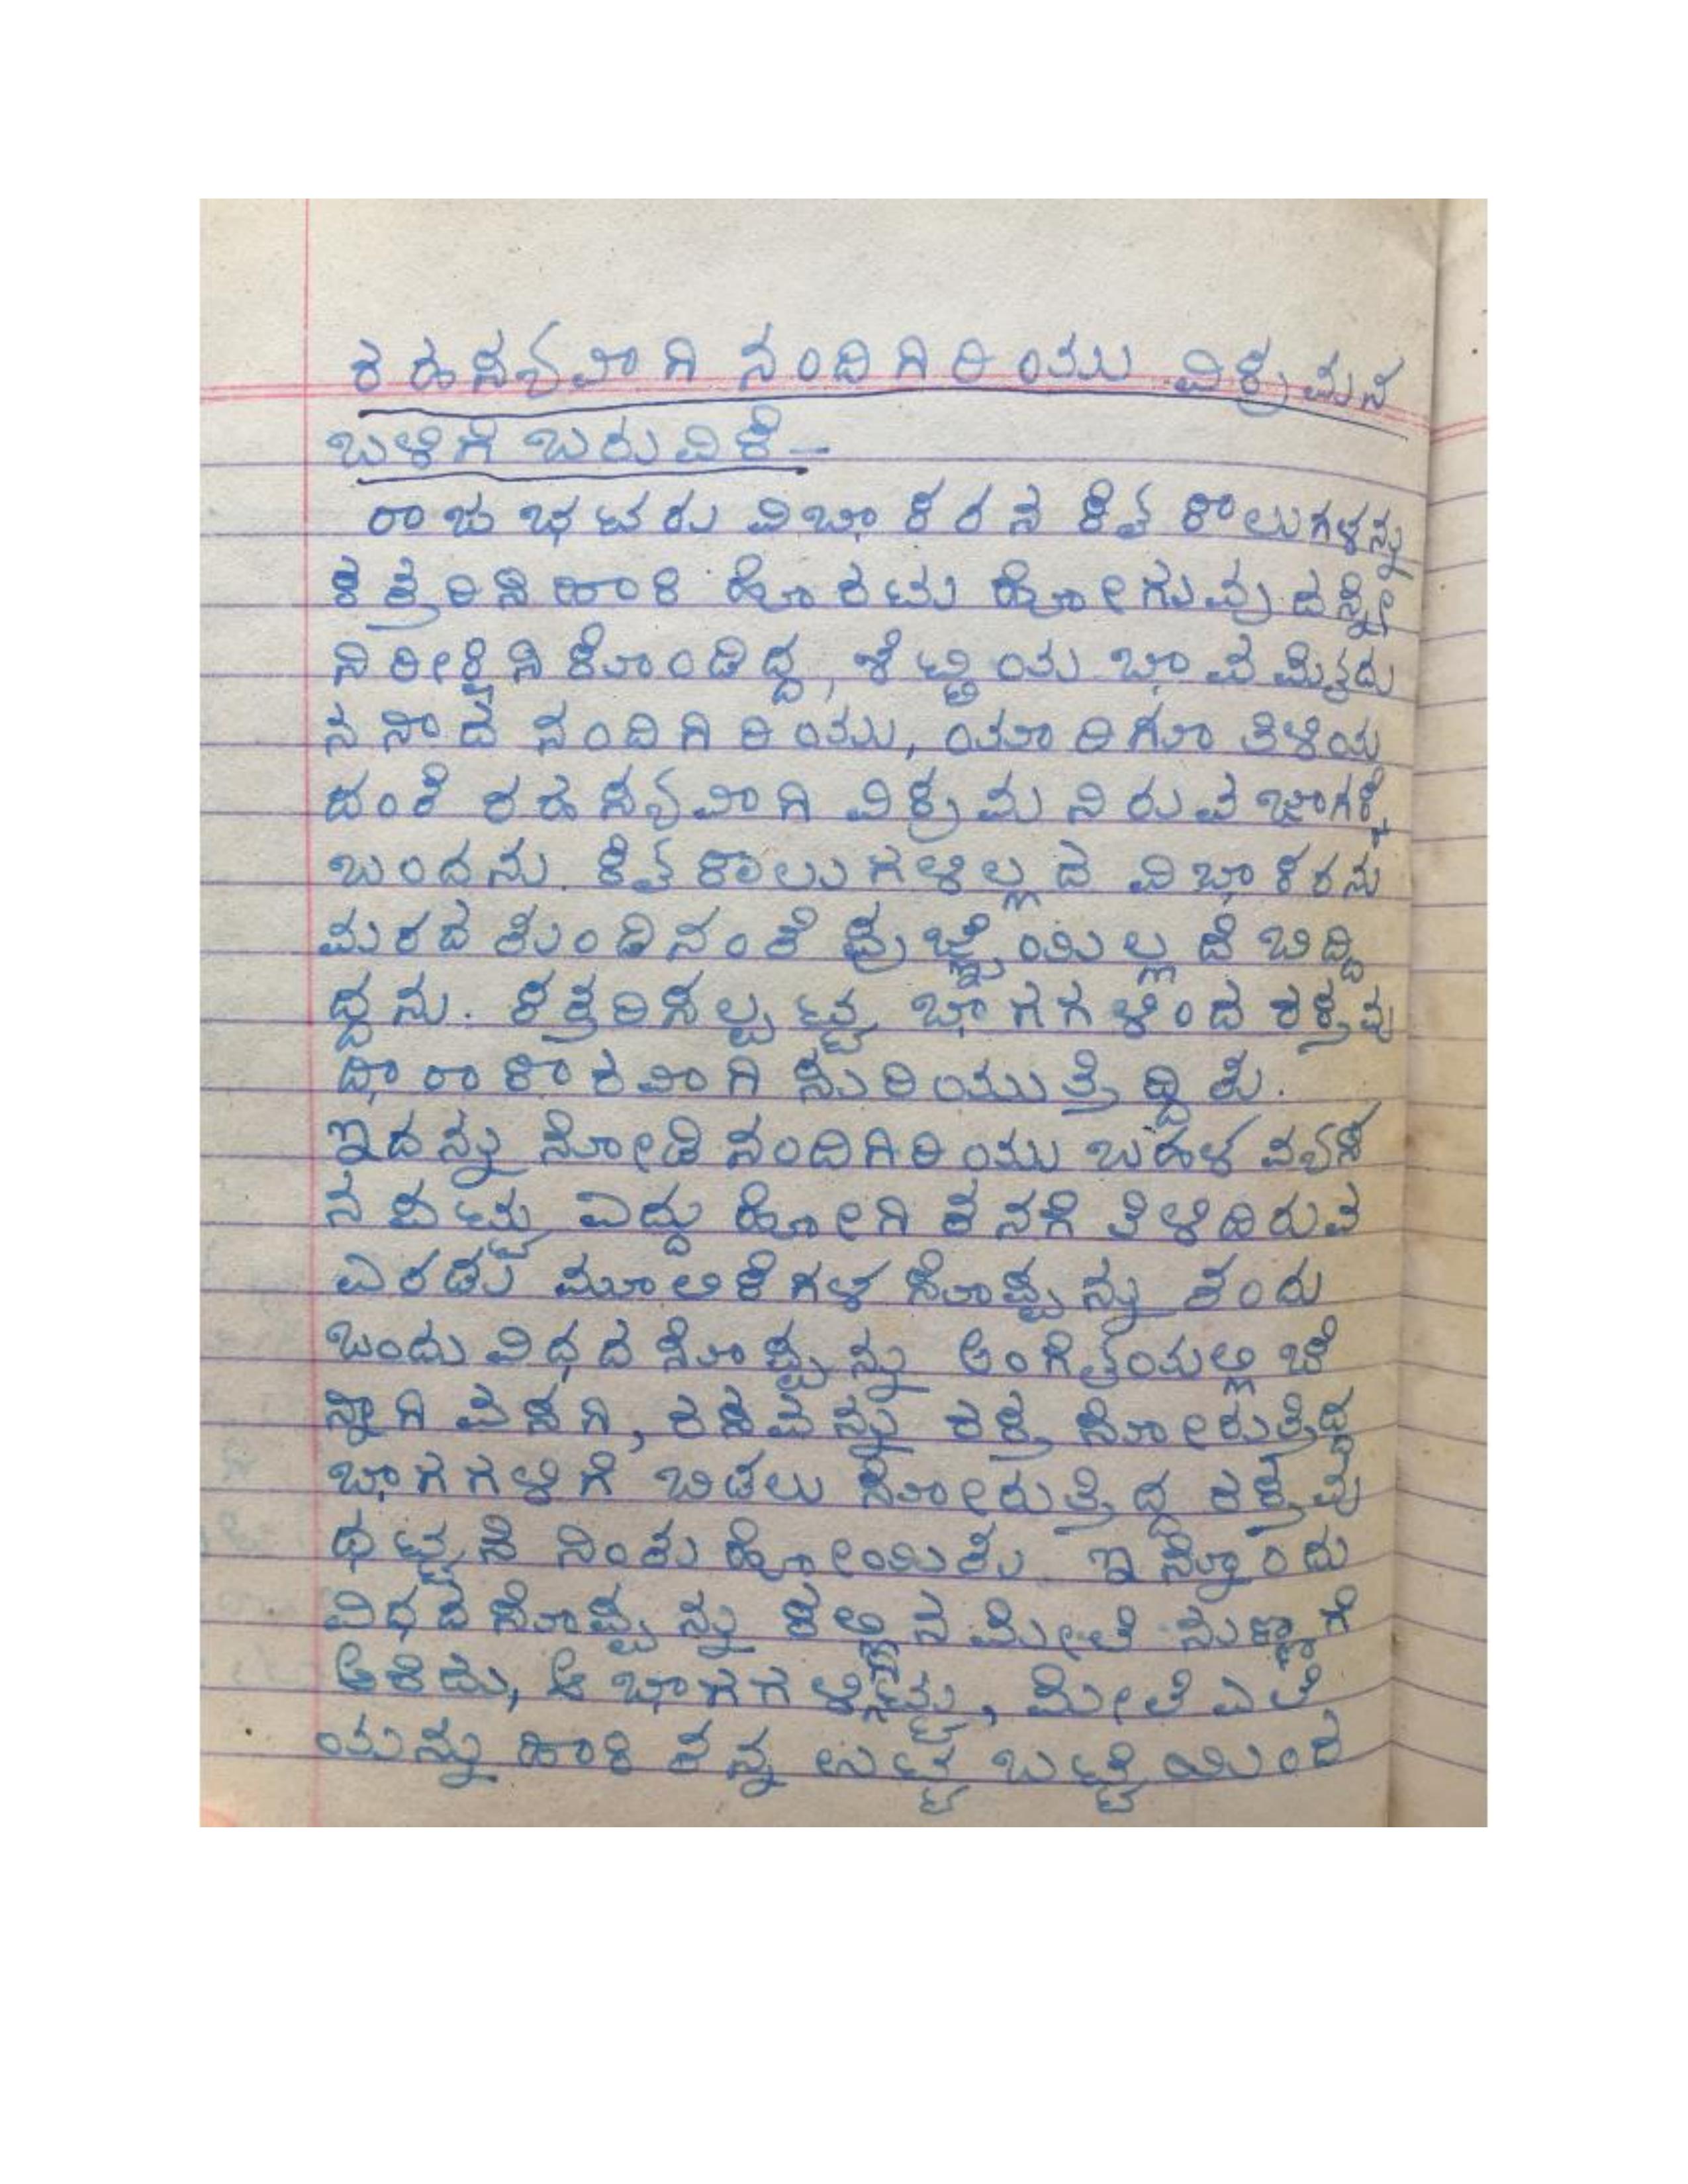 ರಹಸ್ಯವಾಗಿ ನಂದಿಗಿರಿಯು ವಿಕ್ರಮನ
ಬಳಿಗೆ ಬರುವಿಕೆ—
ರಾಜ ಭಟರು ವಿಭಾಕರನ ಕೈ ಕಾಲುಗಳನ್ನು
ಕತ್ತರಿಸಿಹಾಕಿ ಹೊರಟು ಹೋಗುವುದನ್ನೇ
ನಿರೀಕ್ಷಿಸಿಕೊಂಡಿದ್ದ, ಶೆಟ್ಟಿಯ ಭಾವಮೈದು
ನನಾದ ನಂದಿಗಿರಿಯು, ಯಾರಿಗೂ ತಿಳಿಯ
ದಂತೆ ರಹಸ್ಯವಾಗಿ ವಿಕ್ರಮನಿರುವ ಜಾಗಕ್ಕೆ
ಬಂದನು. ಕೈಕಾಲುಗಳಿಲ್ಲದೆ ವಿಭಾಕರನು
ಮರದ ತುಂಡಿನಂತೆ ಪ್ರಜ್ಞೆಯಿಲ್ಲದೆ ಬಿದ್ದಿ
ದ್ದನು. ಕತ್ತರಿಸಲ್ಪಟ್ಟ ಭಾಗಗಳಿಂದ ರಕ್ತವು
ಧಾರಾಕಾರವಾಗಿ ಸುರಿಯುತ್ತಿದ್ದಿತು.
ಇದನ್ನು ನೋಡಿ ನಂದಿಗಿರಿಯು ಬಹಳ ವ್ಯಸ
ನಪಟ್ಟು ಎದ್ದು ಹೋಗಿ ತನಗೆ ತಿಳಿದಿರುವ
ಎರಡು ಮೂಲಿಕೆಗಳ ಸೊಪ್ಪನ್ನು ತಂದು
ಒಂದು ವಿಧದ ಸೊಪ್ಪನ್ನು ಅಂಗೈಯಲ್ಲಿ ಚೆ
ನ್ನಾಗಿ ವಸಗಿ, ರಸವನ್ನು ರಕ್ತ ಸೋರುತ್ತಿದ್ದ
ಭಾಗಗಳಿಗೆ ಬಿಡಲು ಸೋರುತ್ತಿದ್ದ ರಕ್ತವು
ಥಟ್ಟನೆ ನಿಂತು ಹೋಯಿತು. ಇನ್ನೊಂದು
ವಿಧದ ಸೊಪ್ಪನ್ನು ಕಲ್ಲಿನ ಮೇಲೆ ನುಣ್ಣಗೆ
ಅರೆದು, ಆ ಭಾಗಗಳಲ್ಲಿಟ್ಟು, ಮೇಲೆ ಎಲೆ
ಯನ್ನು ಹಾಕಿ ತನ್ನ ಉಟ್ಟ ಬಟ್ಟೆಯಿಂದ